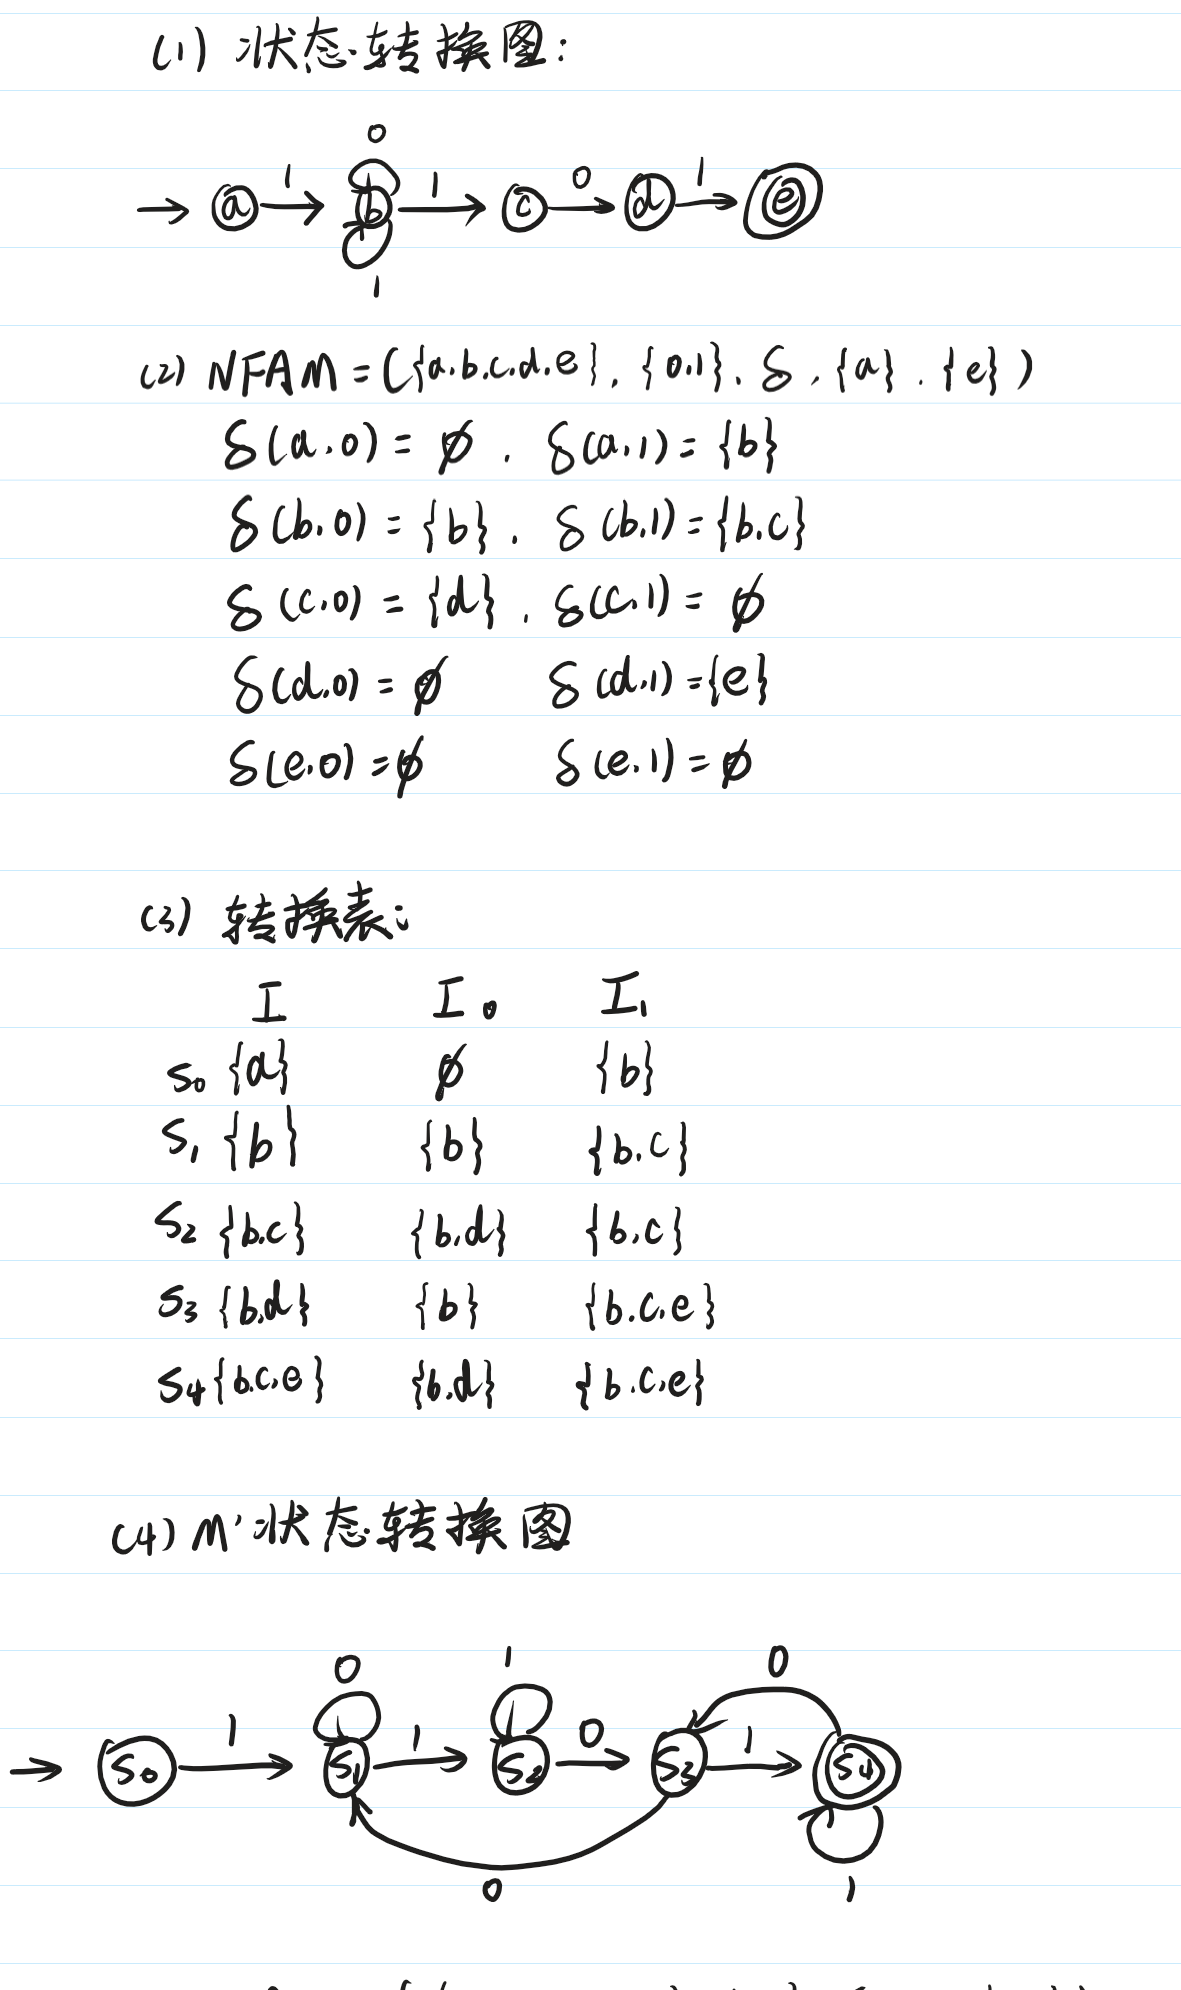 (1) 状态转换图:
0
1 1 0 1
a b c d e
1
(2) NFA M = ({a.b.c.d.e}, {0,1}, δ, {a}, {e})
δ(a,0) = ∅, δ(a,1) = {b}
δ(b,0) = {b}, δ(b,1) = {b,c}
δ(c,0) = {d}, δ(c,1) = ∅
δ(d,0) = ∅ δ(d,1) = {e}
δ(e,0) = ∅ δ(e,1) = ∅
(3) 转换表:
I I₀ I₁
S₀ {a} ∅ {b}
S₁ {b} {b} {b.c}
S₂ {b.c} {b,d} {b,c}
S₃ {b,d} {b} {b.c.e}
S₄ {b.c,e} {b.d} {b.c,e}
(4) M' 状态转换图
0 1 0
1 1 0 1
S₀ S₁ S₂ S₃ S₄
0 1